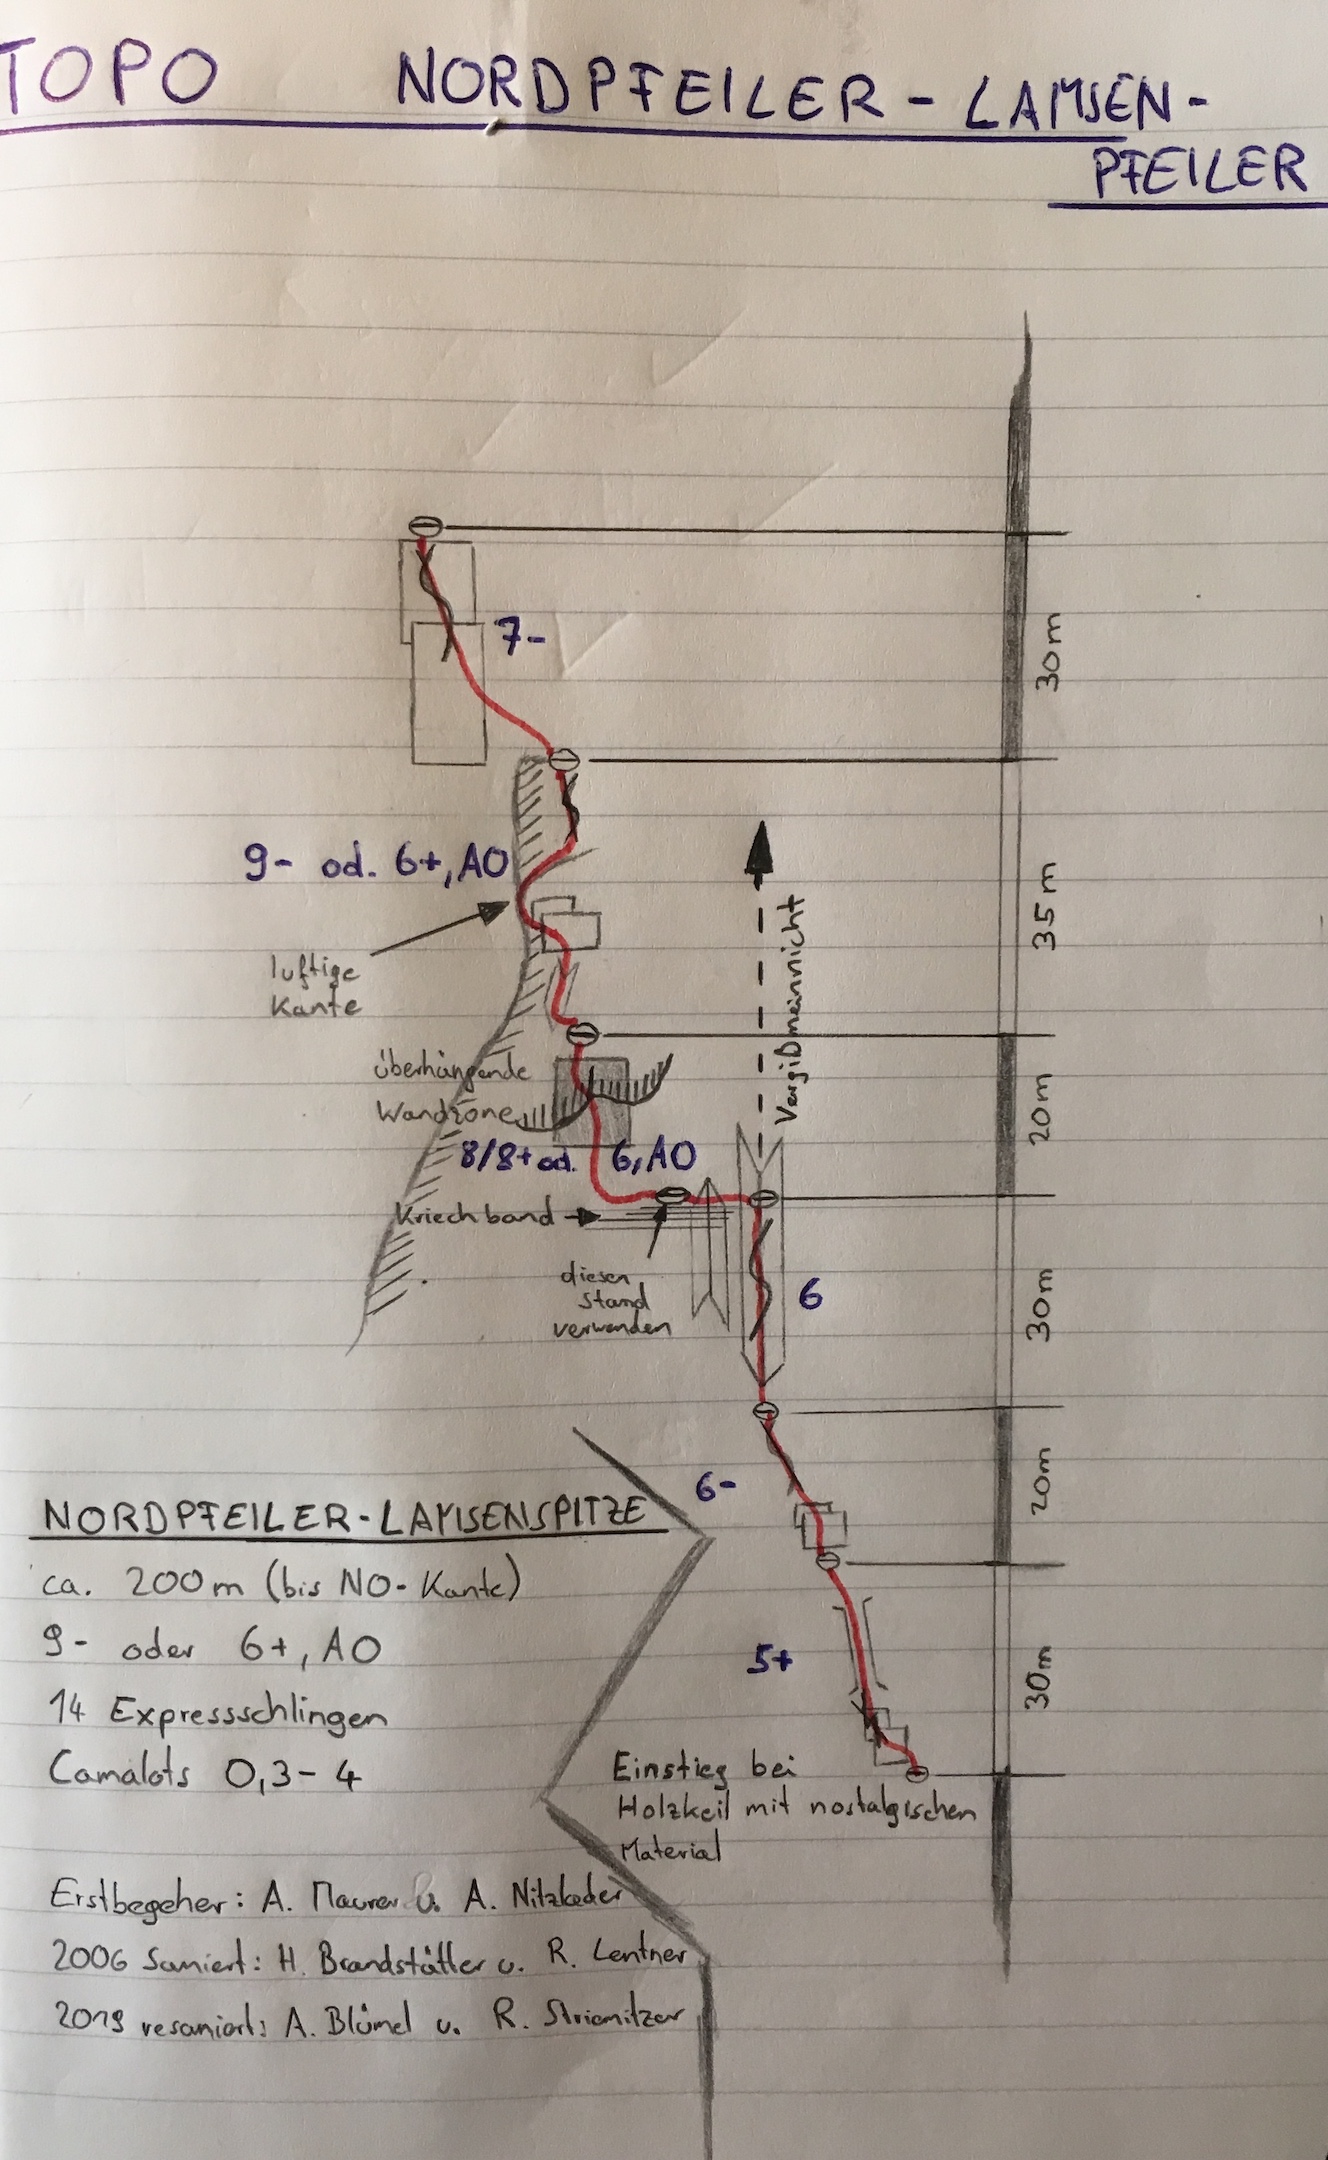 TOPO NORDPFEILER - LAMSEN-
PFEILER
7-
30m
9- od. 6+, AO
35m
luftige
Kante
Vergißmeinnicht
überhängende
Wandzone
20m
8/8+ od. 6, AO
Kriechband
diesen
Stand
verwenden
6
30m
6-
20m
NORDPFEILER-LAMSENSPITZE
ca. 200m (bis NO-Kante)
9- oder 6+, AO
14 Expressschlingen
Camalots 0,3-4
5+
30m
Einstieg bei
Holzkeil mit nostalgischen
Material
Erstbegeher: A. Maurer u. A. Nitzlader
2006 Saniert: H. Brandstätter u. R. Lentner
2019 resaniert: A. Blümel u. R. Striemitzer